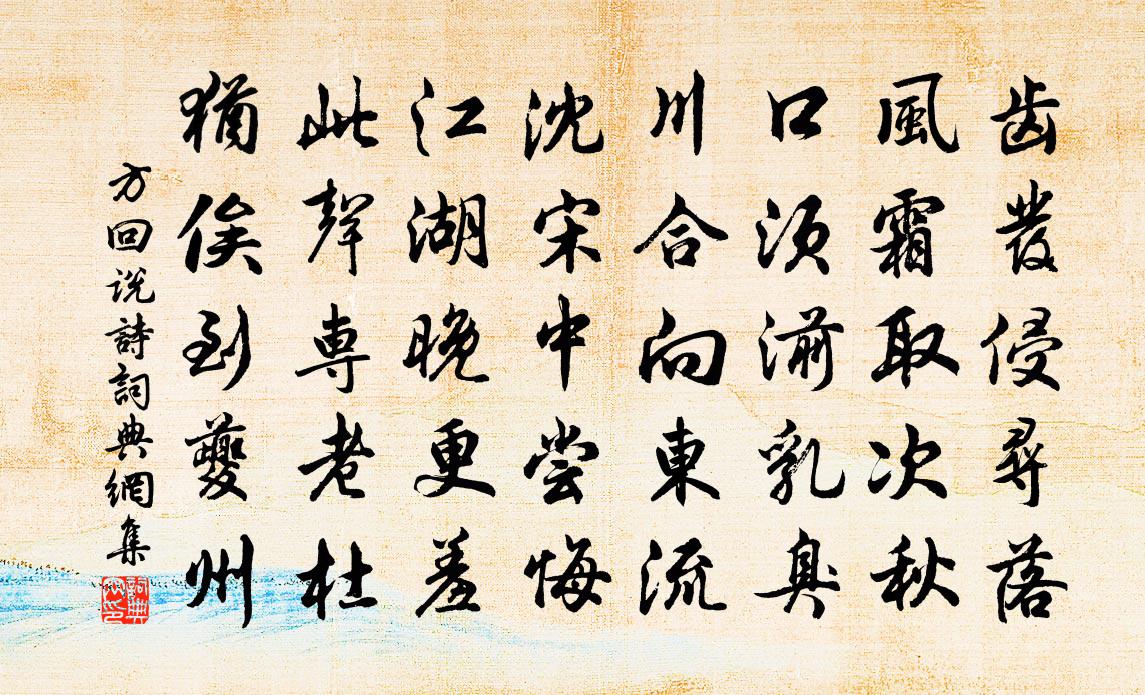 齿髮侵尋落
風霜取次秋
口須湔乳臭
川合向東流
沈宋中嘗悔
江湖晚更羞
此聲専老杜
猶俟到夔州
方回说詩詞典網集